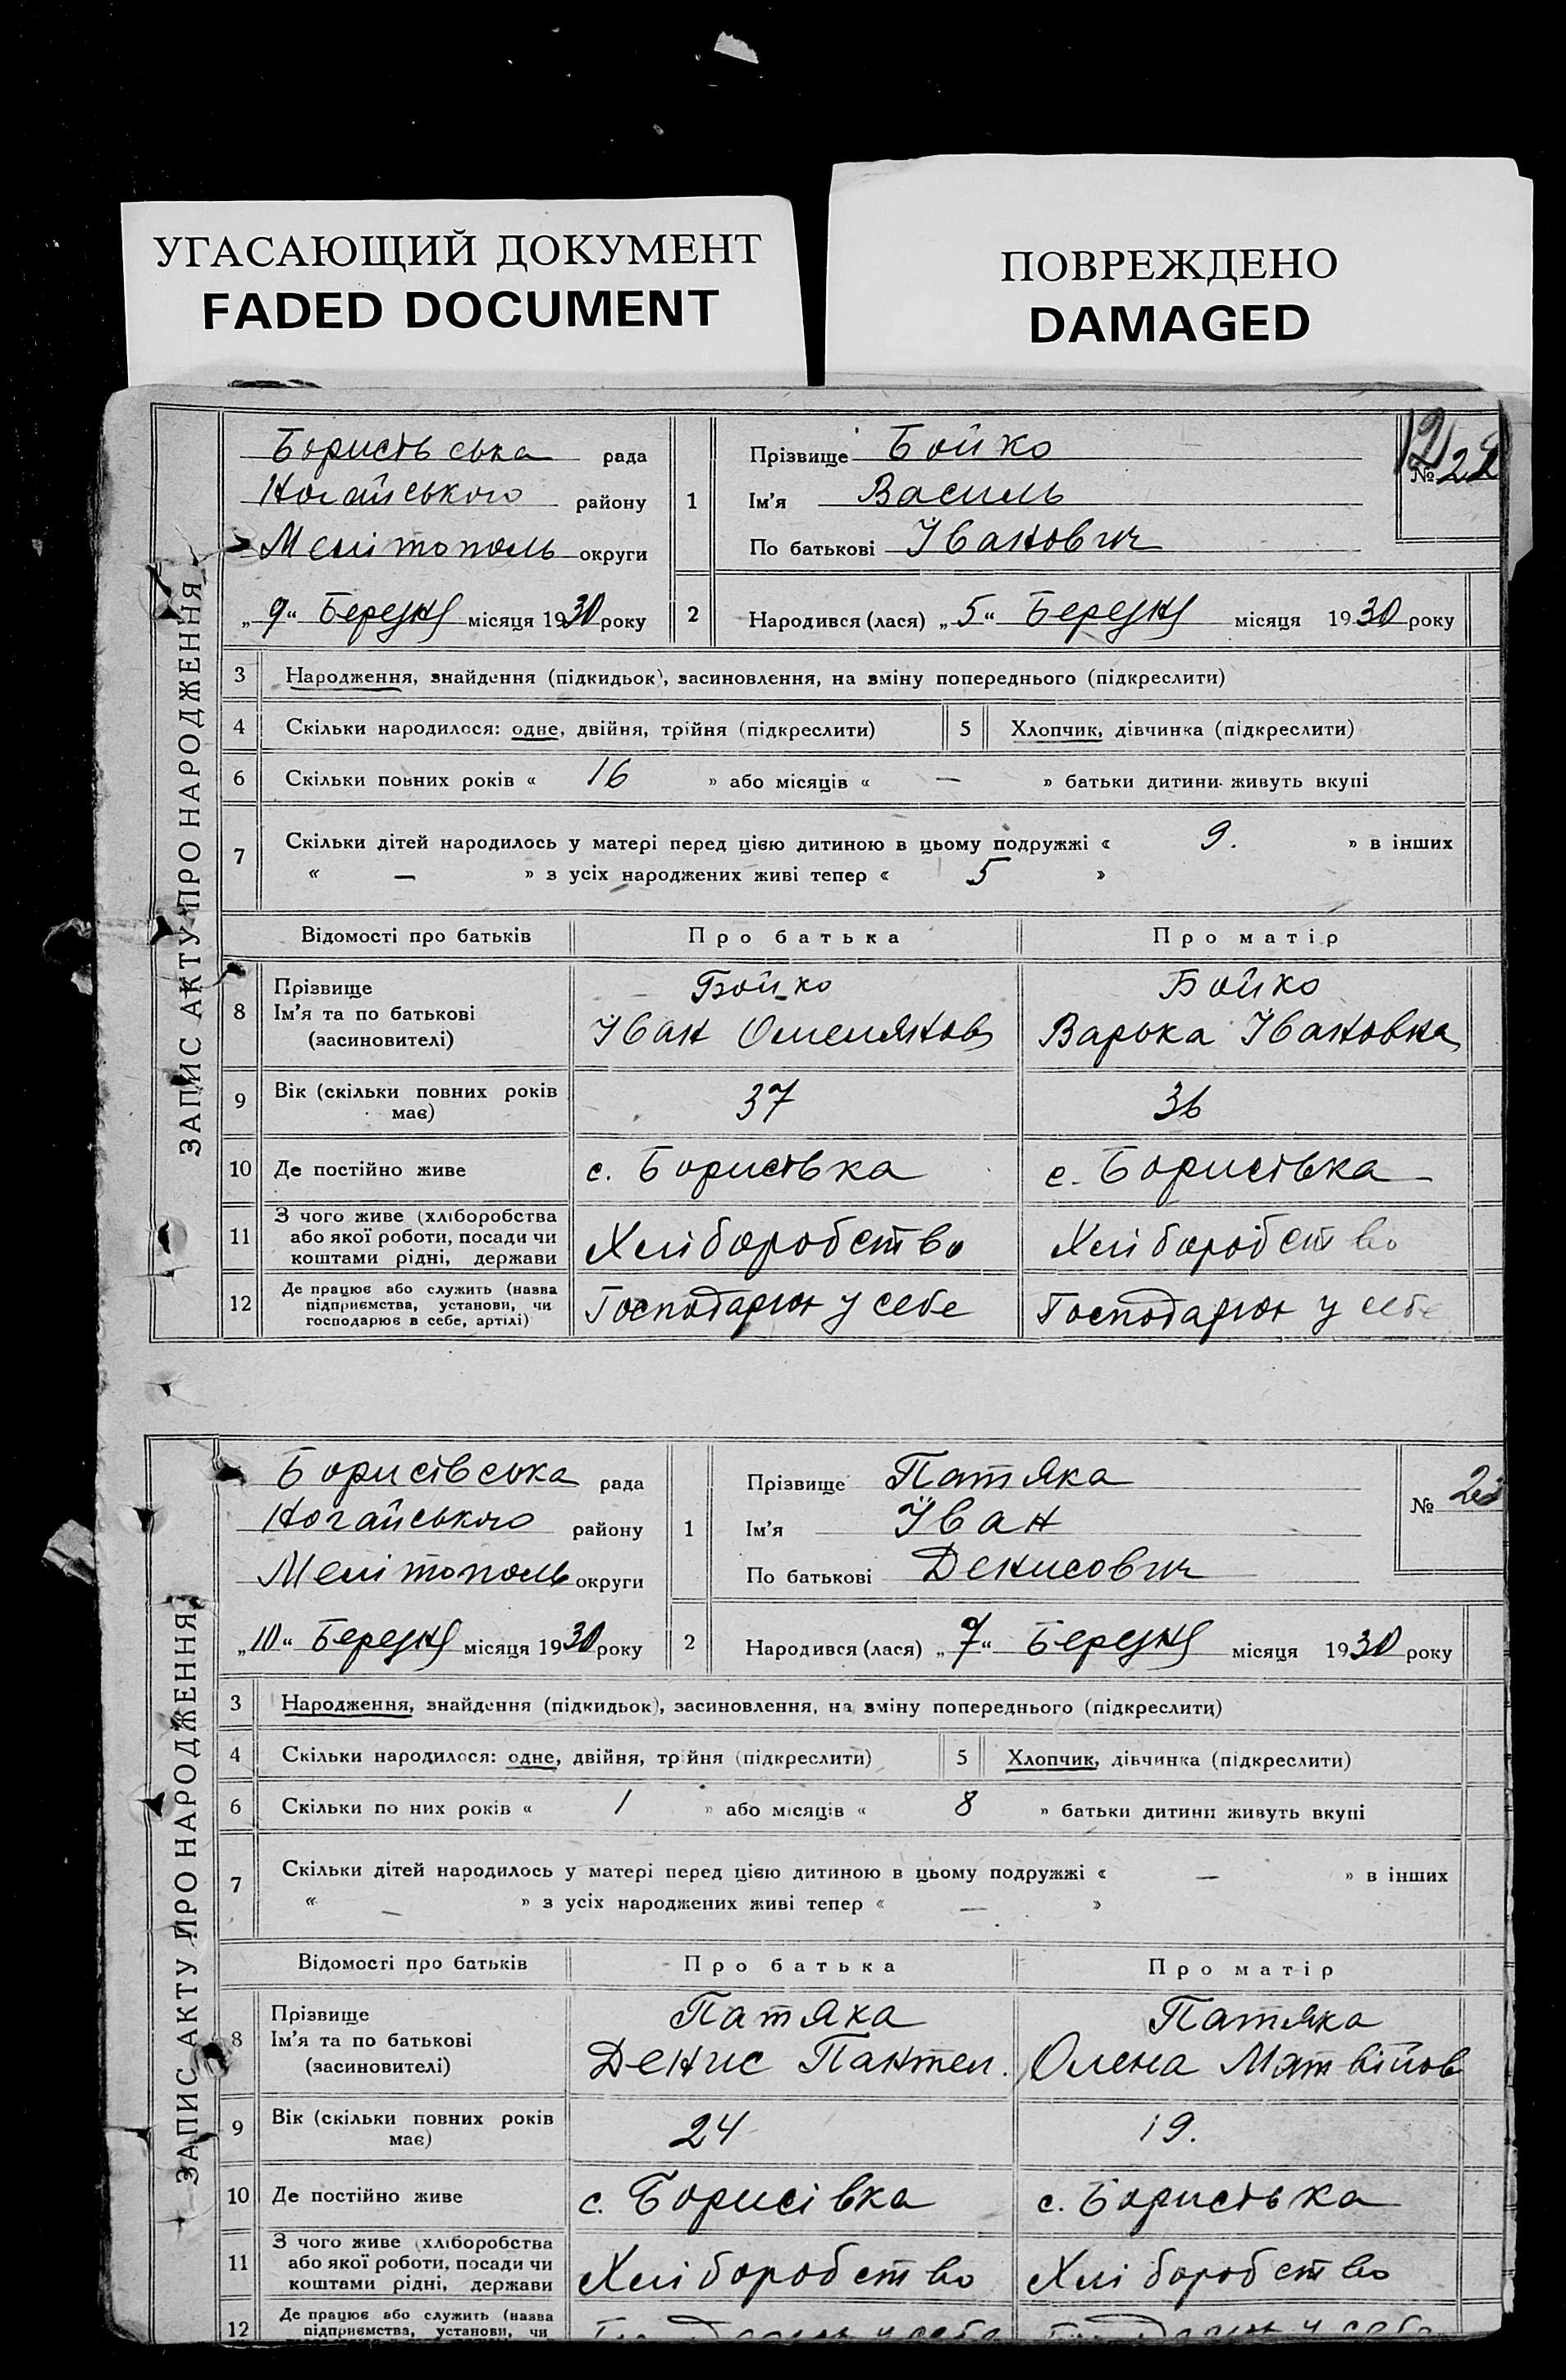 УГАСАЮЩИЙ ДОКУМЕНТ
FADED DOCUMENT
ПОВРЕЖДЕНО
DAMAGED
ЗАПИС АКТУ ПРО НАРОДЖЕННЯ
Борисівська рада
Ногайського району
Мелітополь округи
„9“ Березня місяця 1930 року
1 Прізвище Бойко
Ім'я Василь
По батькові Іванович
№ 22
2 Народився (лася) „5“ Березня місяця 1930 року
3 Народження, знайдення (підкидьок), засиновлення, на зміну попереднього (підкреслити)
4 Скільки народилося: одне, двійня, трійня (підкреслити) 5 Хлопчик, дівчинка (підкреслити)
6 Скільки повних років « 16 » або місяців « — » батьки дитини живуть вкупі
7 Скільки дітей народилось у матері перед цією дитиною в цьому подружжі « 9. » в інших
« — » з усіх народжених живі тепер « 5 »
Відомості про батьків Про батька Про матір
8 Прізвище Бойко Бойко
Ім'я та по батькові Іван Омелянов Варока Івановна
(засиновителі)
9 Вік (скільки повних років має) 37 36
10 Де постійно живе с. Борисівка с. Борисівка
11 З чого живе (хліборобства Хліборобство Хліборобство
або якої роботи, посади чи
коштами рідні, держави
12 Де працює або служить (назва Господарюн у себе Господарюн у себе
підприємства, установи, чи
господарює в себе, артілі)
ЗАПИС АКТУ ПРО НАРОДЖЕННЯ
Борисівська рада
Ногайського району
Мелітополь округи
„10“ Березня місяця 1930 року
1 Прізвище Патяка
Ім'я Іван
По батькові Денисович
№ 23
2 Народився (лася) „7“ Березня місяця 1930 року
3 Народження, знайдення (підкидьок), засиновлення, на зміну попереднього (підкреслити)
4 Скільки народилося: одне, двійня, трійня (підкреслити) 5 Хлопчик, дівчинка (підкреслити)
6 Скільки по них років « 1 » або місяців « 8 » батьки дитини живуть вкупі
7 Скільки дітей народилось у матері перед цією дитиною в цьому подружжі « — » в інших
« — » з усіх народжених живі тепер « — »
Відомості про батьків Про батька Про матір
8 Прізвище Патяка Патяка
Ім'я та по батькові Денис Пантел. Олена Матвійов
(засиновителі)
9 Вік (скільки повних років має) 24 19.
10 Де постійно живе с. Борисівка с. Борисівка
11 З чого живе (хліборобства Хліборобство Хліборобство
або якої роботи, посади чи
коштами рідні, держави
12 Де працює або служить (назва
підприємства, установи, чи